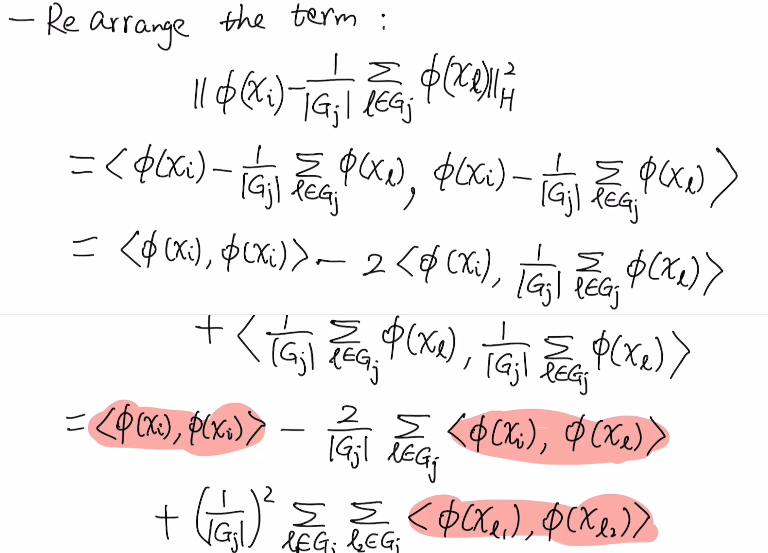 – Rearrange the term :
‖ϕ(xᵢ) – 1/|Gⱼ| ∑_{ℓ∈Gⱼ} ϕ(x_ℓ)‖²_H
= ⟨ϕ(xᵢ) – 1/|Gⱼ| ∑_{ℓ∈Gⱼ} ϕ(x_ℓ), ϕ(xᵢ) – 1/|Gⱼ| ∑_{ℓ∈Gⱼ} ϕ(x_ℓ)⟩
= ⟨ϕ(xᵢ), ϕ(xᵢ)⟩ – 2⟨ϕ(xᵢ), 1/|Gⱼ| ∑_{ℓ∈Gⱼ} ϕ(x_ℓ)⟩
+ ⟨1/|Gⱼ| ∑_{ℓ∈Gⱼ} ϕ(x_ℓ), 1/|Gⱼ| ∑_{ℓ∈Gⱼ} ϕ(x_ℓ)⟩
= ⟨ϕ(xᵢ), ϕ(xᵢ)⟩ – 2/|Gⱼ| ∑_{ℓ∈Gⱼ} ⟨ϕ(xᵢ), ϕ(x_ℓ)⟩
+ (1/|Gⱼ|)² ∑_{ℓ₁∈Gⱼ} ∑_{ℓ₂∈Gⱼ} ⟨ϕ(x_{ℓ₁}), ϕ(x_{ℓ₂})⟩